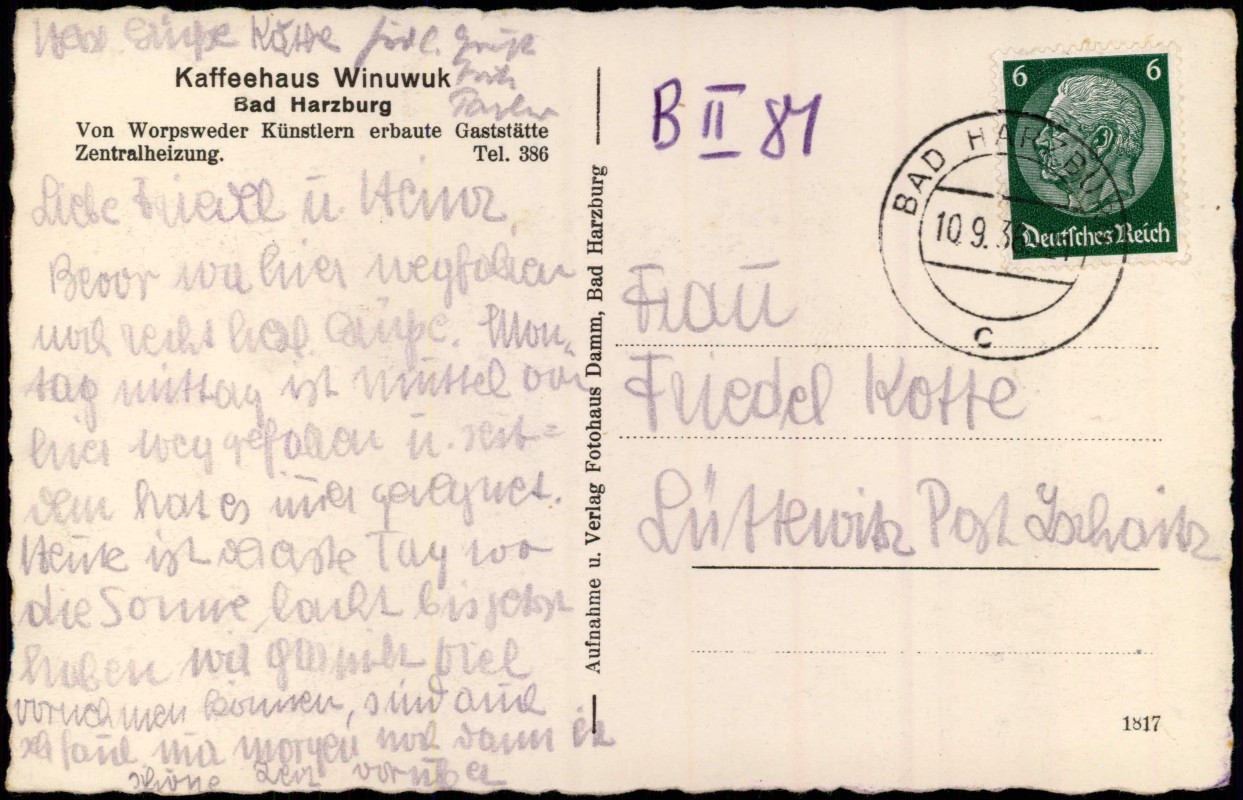 Herzl. Grüße Kotte herzl. Grüße
Kaffeehaus Winuwuk
Bad Harzburg
Von Worpsweder Künstlern erbaute Gaststätte
Zentralheizung. Tel. 386
Liebe Friedel u. Heinz
Bevor wir hier wegfahren
noch recht herzl. Grüße. Mon-
tag mittag ist Muttel von
hier weggefahren u. seit-
dem hat es immer geregnet.
Heute ist der erste Tag wo
die Sonne lacht bis jetzt
haben wir gar nicht viel
vornehmen können, sind auch
nur morgen noch dann ist
schöne Zeit vorüber
Aufnahme u. Verlag Fotohaus Damm, Bad Harzburg
B II 81
6 6
Deutsches Reich
BAD HARZBUR
10.9.3
c
Frau
Friedel Kotte
Lüttewitz Post Zschaitz
1817